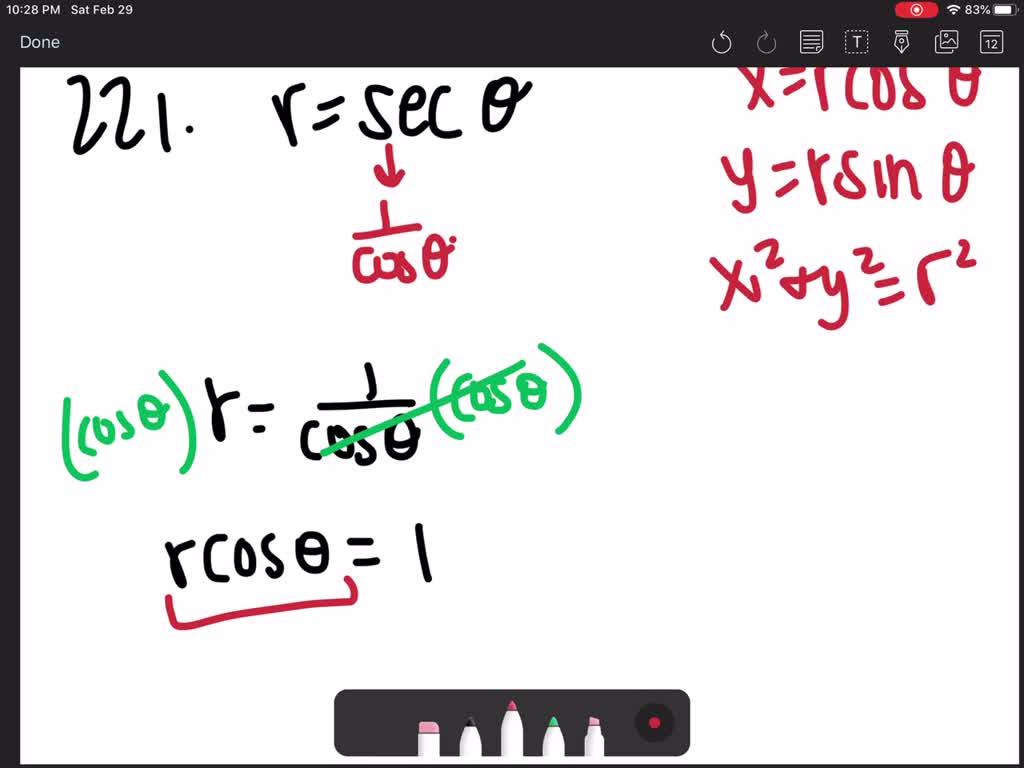 10:28 PM Sat Feb 29
83%
Done
T
12
221. r = sec θ
1
cos θ
x = r cos θ
y = r sin θ
x² + y² = r²
(cos θ) r = 1/cos θ (cos θ)
r cos θ = 1